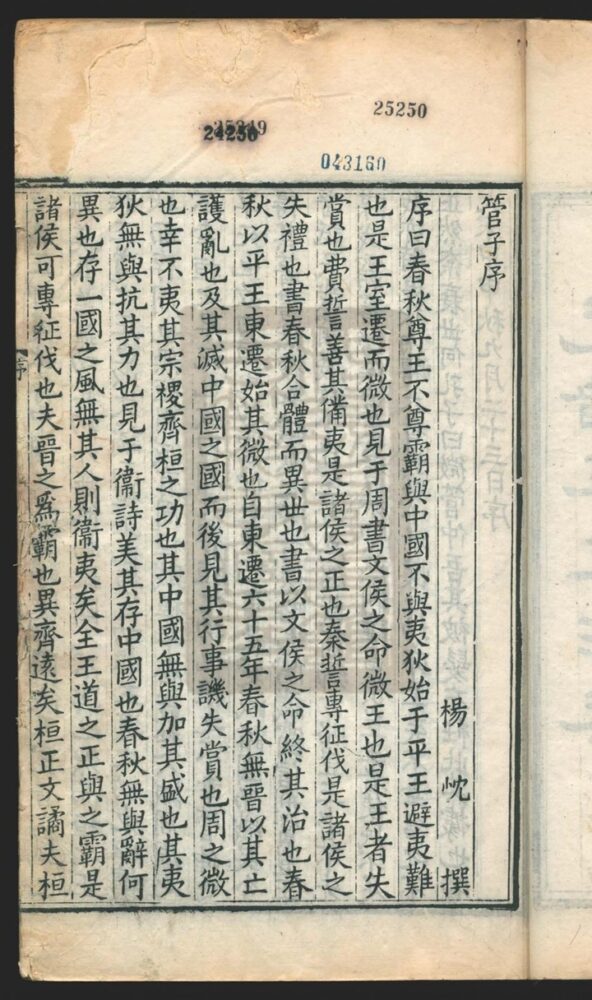 25250
24250
043160
管子序
楊忱撰
序曰春秋尊王不尊霸與中國不與夷狄始于平王避夷難
也是王室遷而微也見于周書文侯之命微王也是王者失
賞也費誓善其備夷是諸侯之正也秦誓專征伐是諸侯之
失禮也書春秋合體而異世也書以文侯之命終其治也春
秋以平王東遷始其微也自東遷六十五年春秋無晉以其亡
護亂也及其滅中國之國而後見其行事譏失賞也周之微
也幸不夷其宗稷齊桓之功也其中國無與加其盛也其夷
狄無與抗其力也見于衞詩美其存中國也春秋無與辭何
異也存一國之風無其人則衞夷矣全王道之正與之霸是
諸侯可專征伐也夫晉之爲霸也異齊遠矣桓正文譎夫桓
序